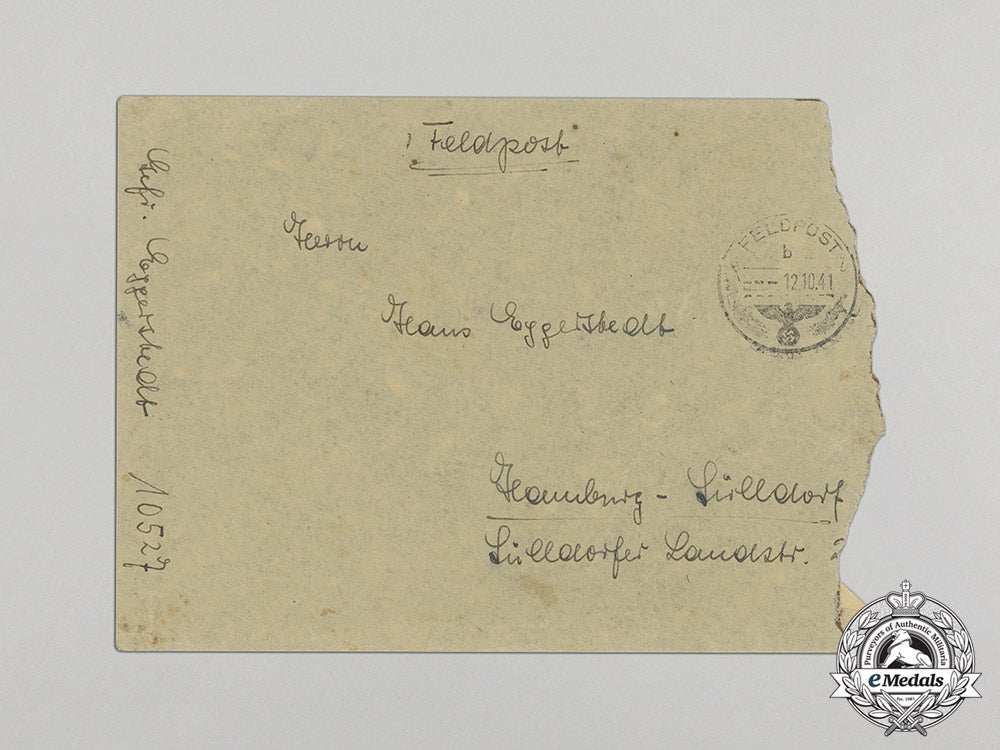 Feldpost
Herrn
Hans Eggerstedt
Hamburg - Sülldorf
Sülldorfer Landstr.
Gefr. Eggerstedt 10527
FELDPOST
b
12.10.41
Purveyors of Authentic Militaria
eMedals
Est. 1985